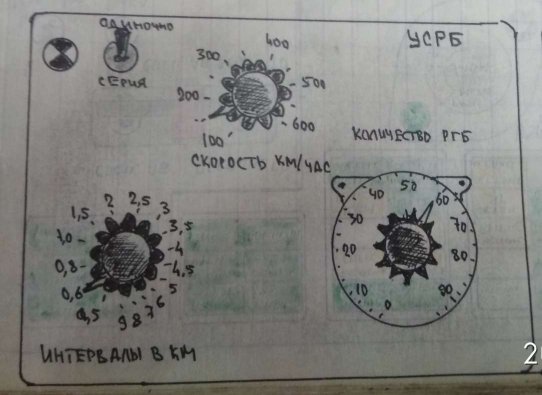 ОДИНОЧНО
СЕРИЯ
УСРБ
300
400
200
500
100
600
СКОРОСТЬ КМ/ЧАС
КОЛИЧЕСТВО РГБ
2
2,5
3
1,5
3,5
1,0
4
0,8
4,5
0,6
5
0,5
6
7
8
9
ИНТЕРВАЛЫ В КМ
50
40
60
30
70
20
80
10
90
0